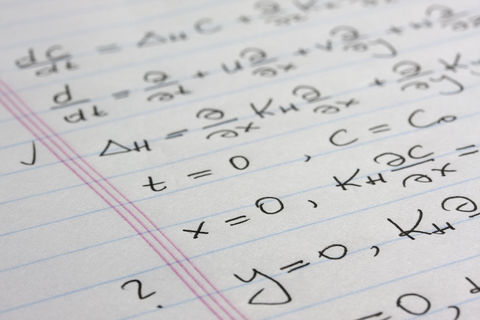 dC/dt = Δ_H C + ∂/∂z K
d/dt = ∂/∂t + u ∂/∂x + v ∂/∂y + w ∂
) Δ_H = ∂/∂x K_H ∂/∂x + ∂/∂y K
t = 0 , C = C_0
x = 0 , K_H ∂C/∂x =
y = 0 , K_H ∂
2.
= 0 ,